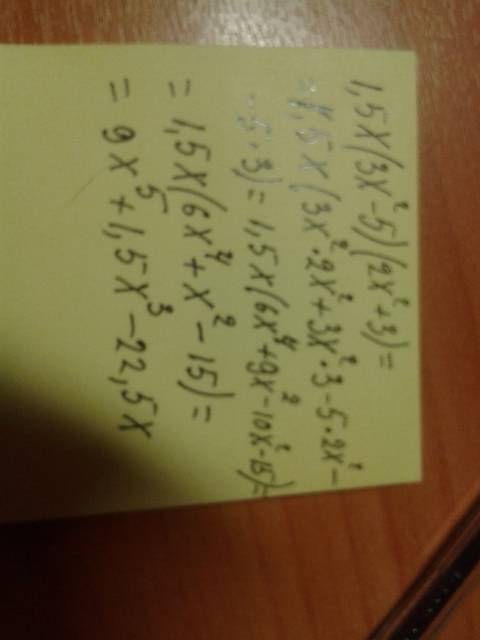 1,5x(3x²-5)(2x²+3)=
=1,5x(3x²·2x²+3x²·3-5·2x²-
-5·3)=1,5x(6x⁴+9x²-10x²-15)=
=1,5x(6x⁴+x²-15)=
=9x⁵+1,5x³-22,5x